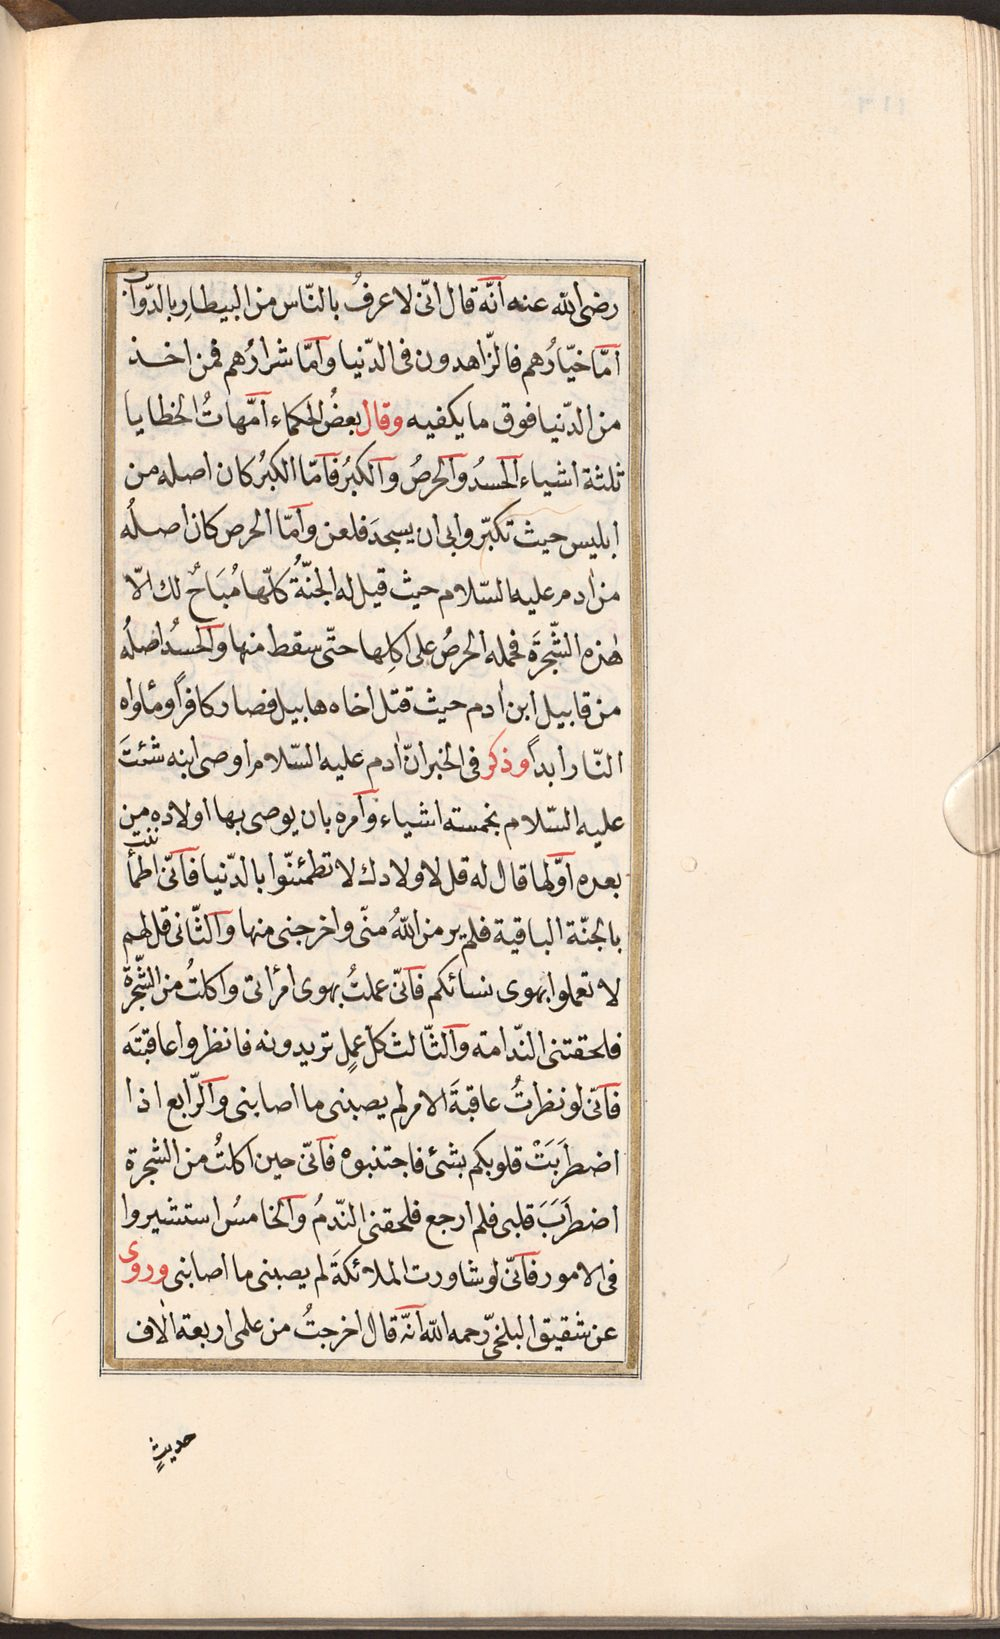 رضى الله عنه انّه قال انّى لاعرفُ بالنّاس من البيطارِ بالدّوابّ
امّا خيّارُهم فالزّاهدون فى الدّنيا وامّا شرارُهم فمن اخذ
من الدّنيا فوق ما يكفيه وقال بعضُ الحكماء امّهاتُ الخطايا
ثلثة اشياء الحسدُ والحرصُ والكبرُ فامّا الكبرُ كان اصله من
ابليس حيث تكبّر وابى ان يسجدَ فلعن وامّا الحرص كان اصلُه
من اٰدم عليه السّلام حيث قيل له الجنّةُ كلّها مُبَاحٌ لك الّا
هٰذه الشّجرَة فحمله الحرصُ على اكلِها حتّى سقط منها والحسدُ اصلُه
من قابيل ابن اٰدم حيث قتل اخاه هابيل فصار كافراً ومأواه
النّار ابداً وذكر فى الخبر انّ اٰدم عليه السّلام اوصى ابنه شئتَ
عليه السّلام بخمسته اشياء وامره بان يوصى بها اولاده من
بعده اوّلها قال له قل لاولادك لا تطمئنّوا بالدّنيا فانّى اطمأننت
بالجنّة الباقية فلم ير من اللهُ منّى واخرجنى منها والثّانى قل لهم
لا تعملوا بهوى نسائكم فانّى عملتُ بهوى امرأتى واكلتُ من الشّجرة
فلحقتنى النّدامة والثّالث كلّ عملٍ تريدونه فانظروا عاقبتَه
فانّى لو نظرتُ عاقبةَ الامر لم يصبنى ما اصابنى والرّابع اذا
اضطرَبَتْ قلوبكم بشئ فاجتنبوه فانّى حين اكلتُ من الشجرة
اضطرَبَ قلبى فلم ارجع فلحقنى النّدمُ والخامسُ استشيروا
فى الامور فانّى لو شاورت الملائكةَ لم يصبنى ما اصابنى وروى
عن شقيق البلخىّ رحمه الله انّه قال اخرجتُ من علمى اربعة اٰلاف
حديثٍ